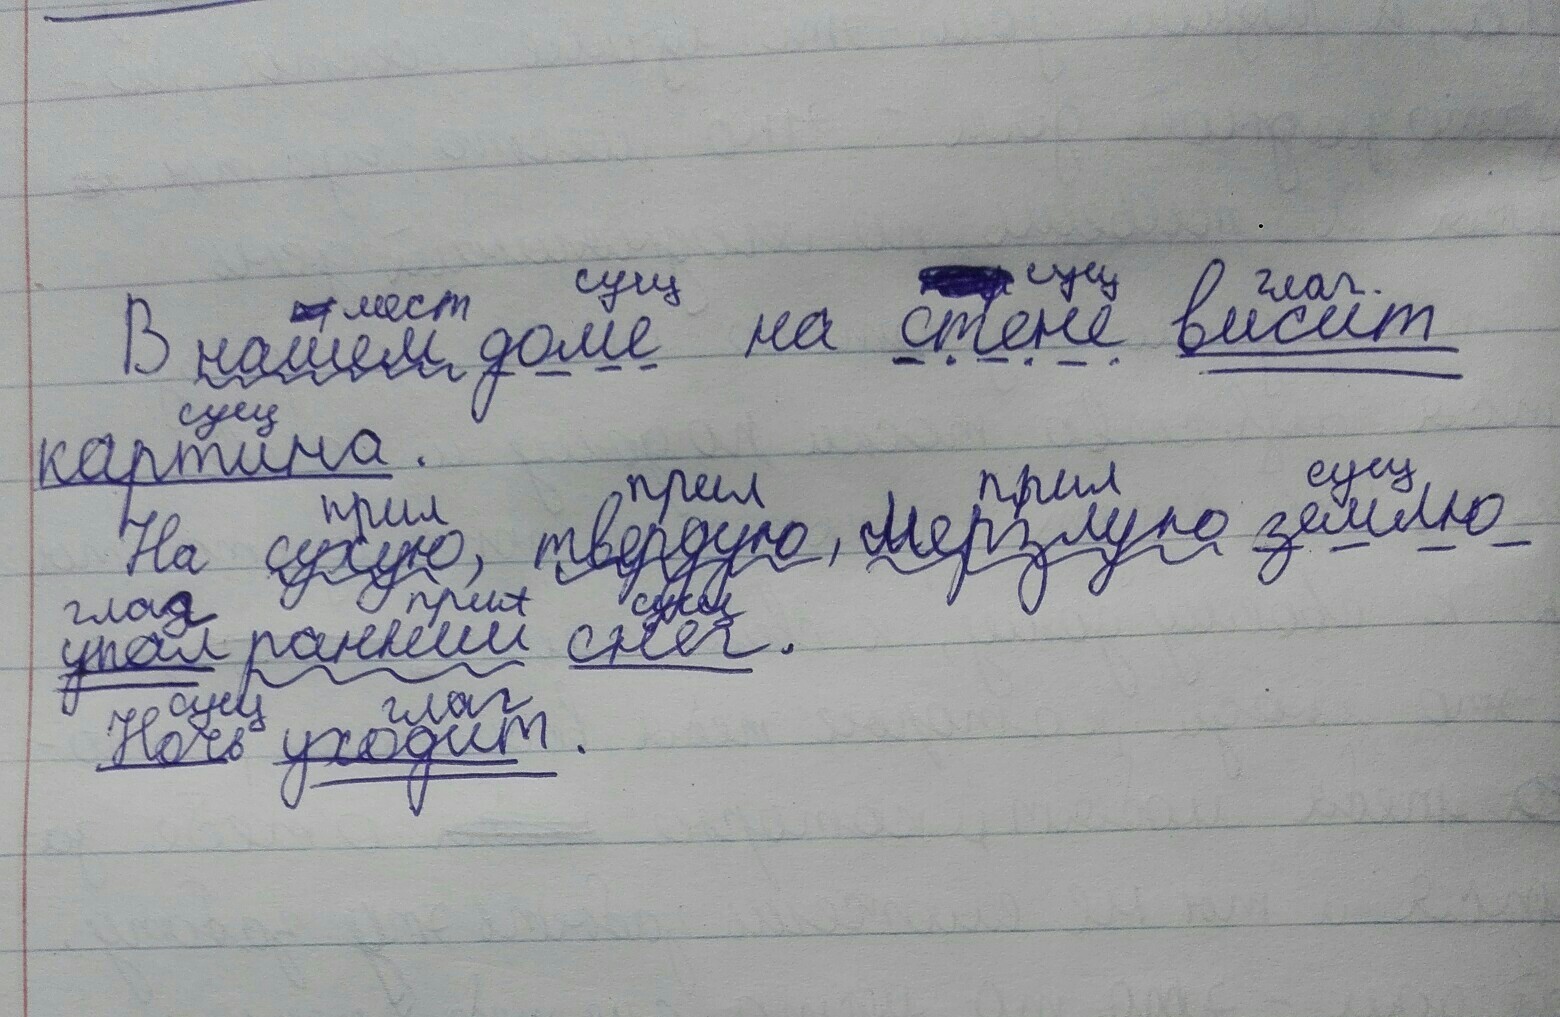 мест сущ сущ глаг.
В нашем доме на стене висит
сущ
картина.
прил прил прил сущ
На сухую, твердую, мерзлую землю
глаг прил сущ
упал ранний снег.
сущ глаг
Ночь уходит.